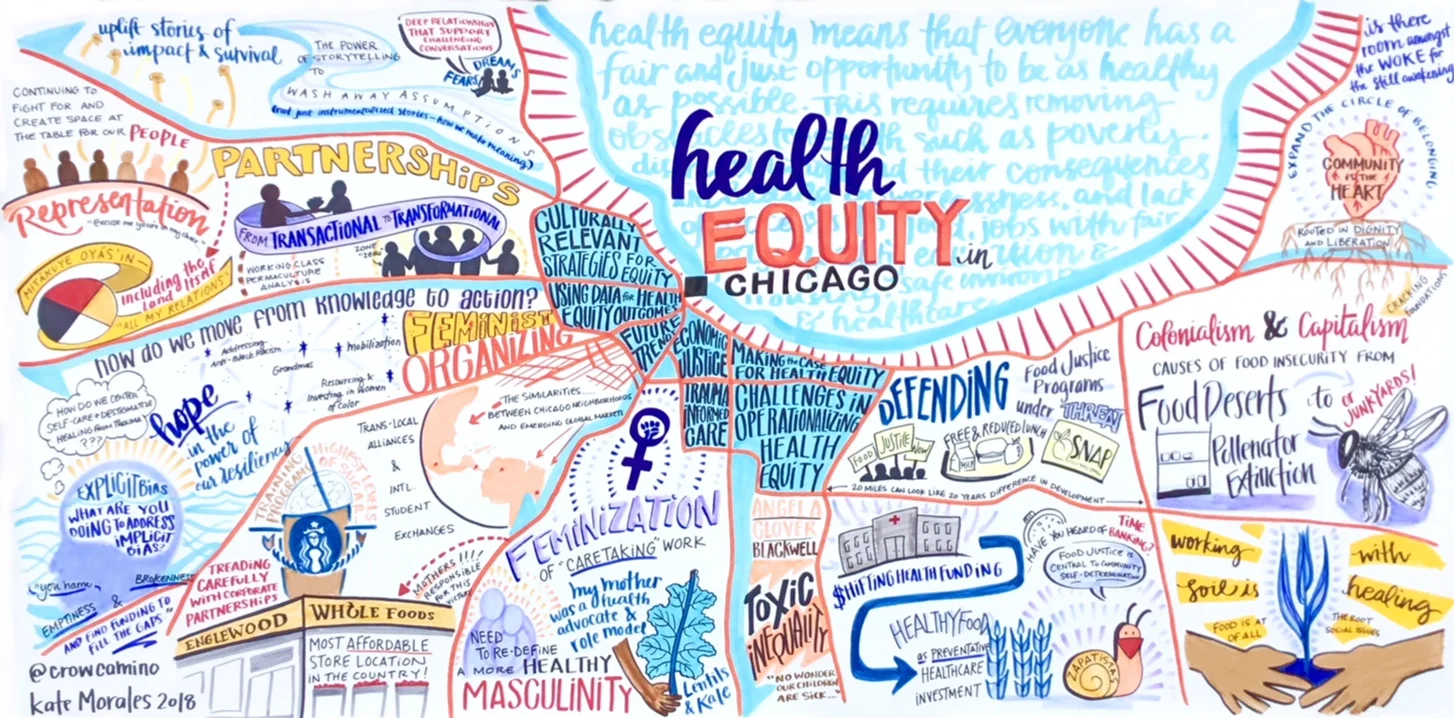 uplift stories of
impact & survival
THE POWER
OF STORYTELLING
TO
WASH AWAY ASSUMPTIONS
(not just instrumentalized stories - how we make meaning?)
DEEP RELATIONSHIPS
THAT SUPPORT
CHALLENGING
CONVERSATIONS
FEARS
DREAMS
CONTINUING TO
FIGHT FOR AND
CREATE SPACE AT
THE TABLE FOR OUR PEOPLE
Representation
MITAKUYE OYÁS'IN
including the
Land itself
"ALL MY RELATIONS"
PARTNERSHIPS
FROM TRANSACTIONAL TO TRANSFORMATIONAL
WORKING CLASS
PERMACULTURE
ANALYSIS
ZONE
"ZERO"
health equity means that everyone has a
fair and just opportunity to be as healthy
as possible. This requires removing
such as poverty
their consequences
and lack
jobs with fair
safe
& healthcare
health
EQUITY in
CHICAGO
is there
room amongst
the WOKE for
the still awakening
EXPAND THE CIRCLE OF BELONGING
COMMUNITY
IS THE
HEART
ROOTED IN DIGNITY
AND LIBERATION
CRACKING
FOUNDATIONS
CULTURALLY
RELEVANT
STRATEGIES FOR
EQUITY
USING DATA FOR HEALTH
EQUITY OUTCOMES
FUTURE
TRENDS
ECONOMIC
JUSTICE
TRAUMA
INFORMED
CARE
MAKING THE CASE
FOR HEALTH EQUITY
CHALLENGES IN
OPERATIONALIZING
HEALTH
EQUITY
how do we move from knowledge to action?
Addressing
Anti-Black Racism
Grandmas
mobilization
Resourcing &
Investing in Women
of Color
FEMINIST
ORGANIZING
HOW DO WE CENTER
SELF-CARE + DESTIGMATIZE
HEALING FROM TRAUMA
???
hope
in the
power of
our resiliency
EXPLICIT BIAS
WHAT ARE YOU
DOING TO ADDRESS
IMPLICIT
BIAS?
BROKENNESS
EMPTINESS &
AND FIND FUNDING TO
FILL THE GAPS"
@crowcamino
kate Morales 2018
TRAINING
PROGRAMS
HIGHEST LEVELS
OF SUGARS
TREADING
CAREFULLY
WITH CORPORATE
PARTNERSHIPS
TRANS-LOCAL
ALLIANCES
&
INTL.
STUDENT
EXCHANGES
THE SIMILARITIES....
BETWEEN CHICAGO NEIGHBORHOODS
AND EMERGING GLOBAL MARKETS
MOTHERS!!
RESPONSIBLE
FOR THIS
VICTORY
ENGLEWOOD
WHOLE FOODS
MOST AFFORDABLE
STORE LOCATION
IN THE COUNTRY!
FEMINIZATION
OF "CARETAKING" WORK
my mother
was a health
advocate &
role model
NEED
TO RE-DEFINE
A MORE HEALTHY
MASCULINITY
Lentils
& Kale
ANGELA
GLOVER
BLACKWELL
TOXIC
INEQUALITY
"NO WONDER
OUR CHILDREN
ARE SICK..."
DEFENDING
Food Justice
Programs
under THREAT
FOOD JUSTICE NOW
FREE & REDUCED LUNCH
MILK
SNAP
20 MILES CAN LOOK LIKE 20 YEARS DIFFERENCE IN DEVELOPMENT
$HIFTING HEALTH FUNDING
HEALTHY FOOD
as PREVENTATIVE
HEALTHCARE
INVESTMENT
HAVE YOU HEARD OF TIME
BANKING?
FOOD JUSTICE IS
CENTRAL TO COMMUNITY
SELF-DETERMINATION
ZAPATISTAS
Colonialism & Capitalism
CAUSES OF FOOD INSECURITY FROM
Food Deserts to or JUNKYARDS!
Pollenator
Extinction
working with
soil is healing
FOOD IS AT
OF ALL
THE ROOT
SOCIAL ISSUES